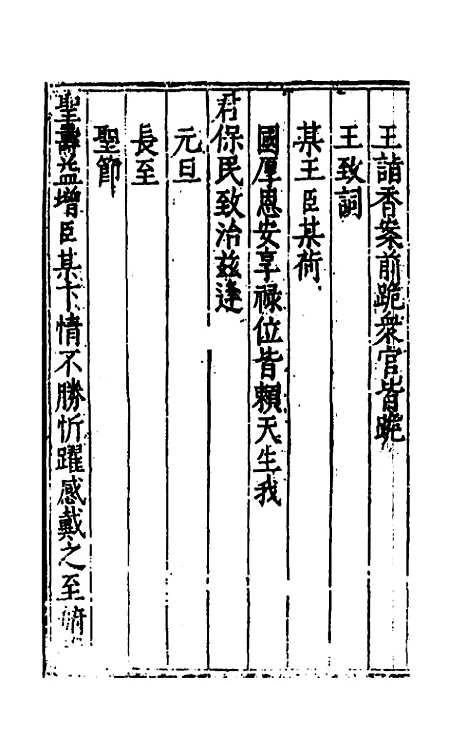 王詣香案前跪衆官皆跪
王致詞
某王臣某荷
國厚恩安享禄位皆賴天生我
君保民致治兹逢
元旦
長至
聖節
聖壽益增臣某下情不勝忻躍感戴之至